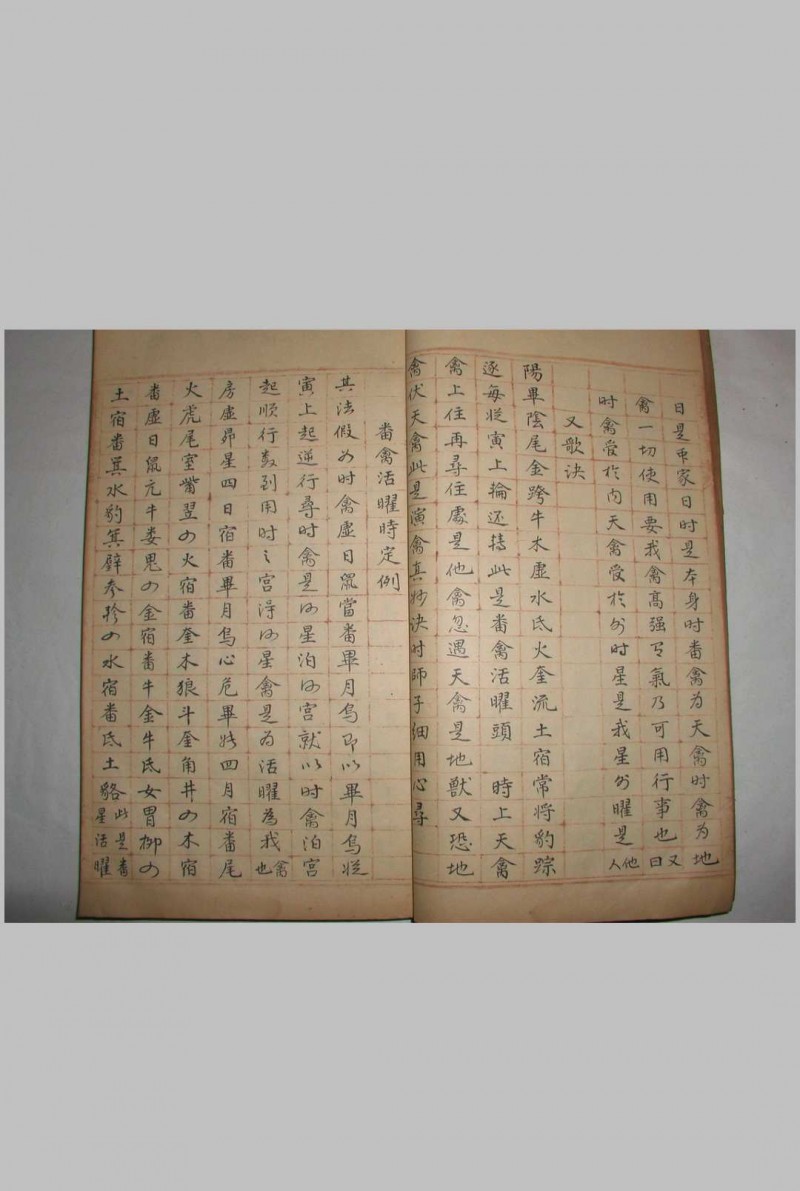 日是帀家日时是本身时番禽为天禽时禽为地
禽一切使用要我禽高强弓氣乃可用行事也又曰
时禽爱於内天禽爱於外时星是我星外曜是他人
又歌诀
陽畢陰尾金跨牛木虚水氐火奎流土宿常将豹踪
逐每從寅上輪还转此是番禽活曜頭 時上天禽
禽上住再尋住處是他禽忽遇天禽是地獸又恐地
禽伏天禽此是演禽真妙诀时師子细用心尋
番禽活曜時定例
其法假如时禽虚日鼠當番畢月烏即以畢月烏從
寅上起逆行尋时禽是何星泊何宫就以时禽泊宫
起顺行数到用时之宫浔何星禽是为活曜為我禽也
房虚昴星四日宿番畢月烏心危畢张四月宿番尾
火虎尾室觜翌四火宿番奎木狼斗奎角井四木宿
番虚日鼠亢牛娄鬼四金宿番牛金牛氐女胃柳四
土宿番箕水豹箕壁参轸四水宿番氐土貉此是番星活曜